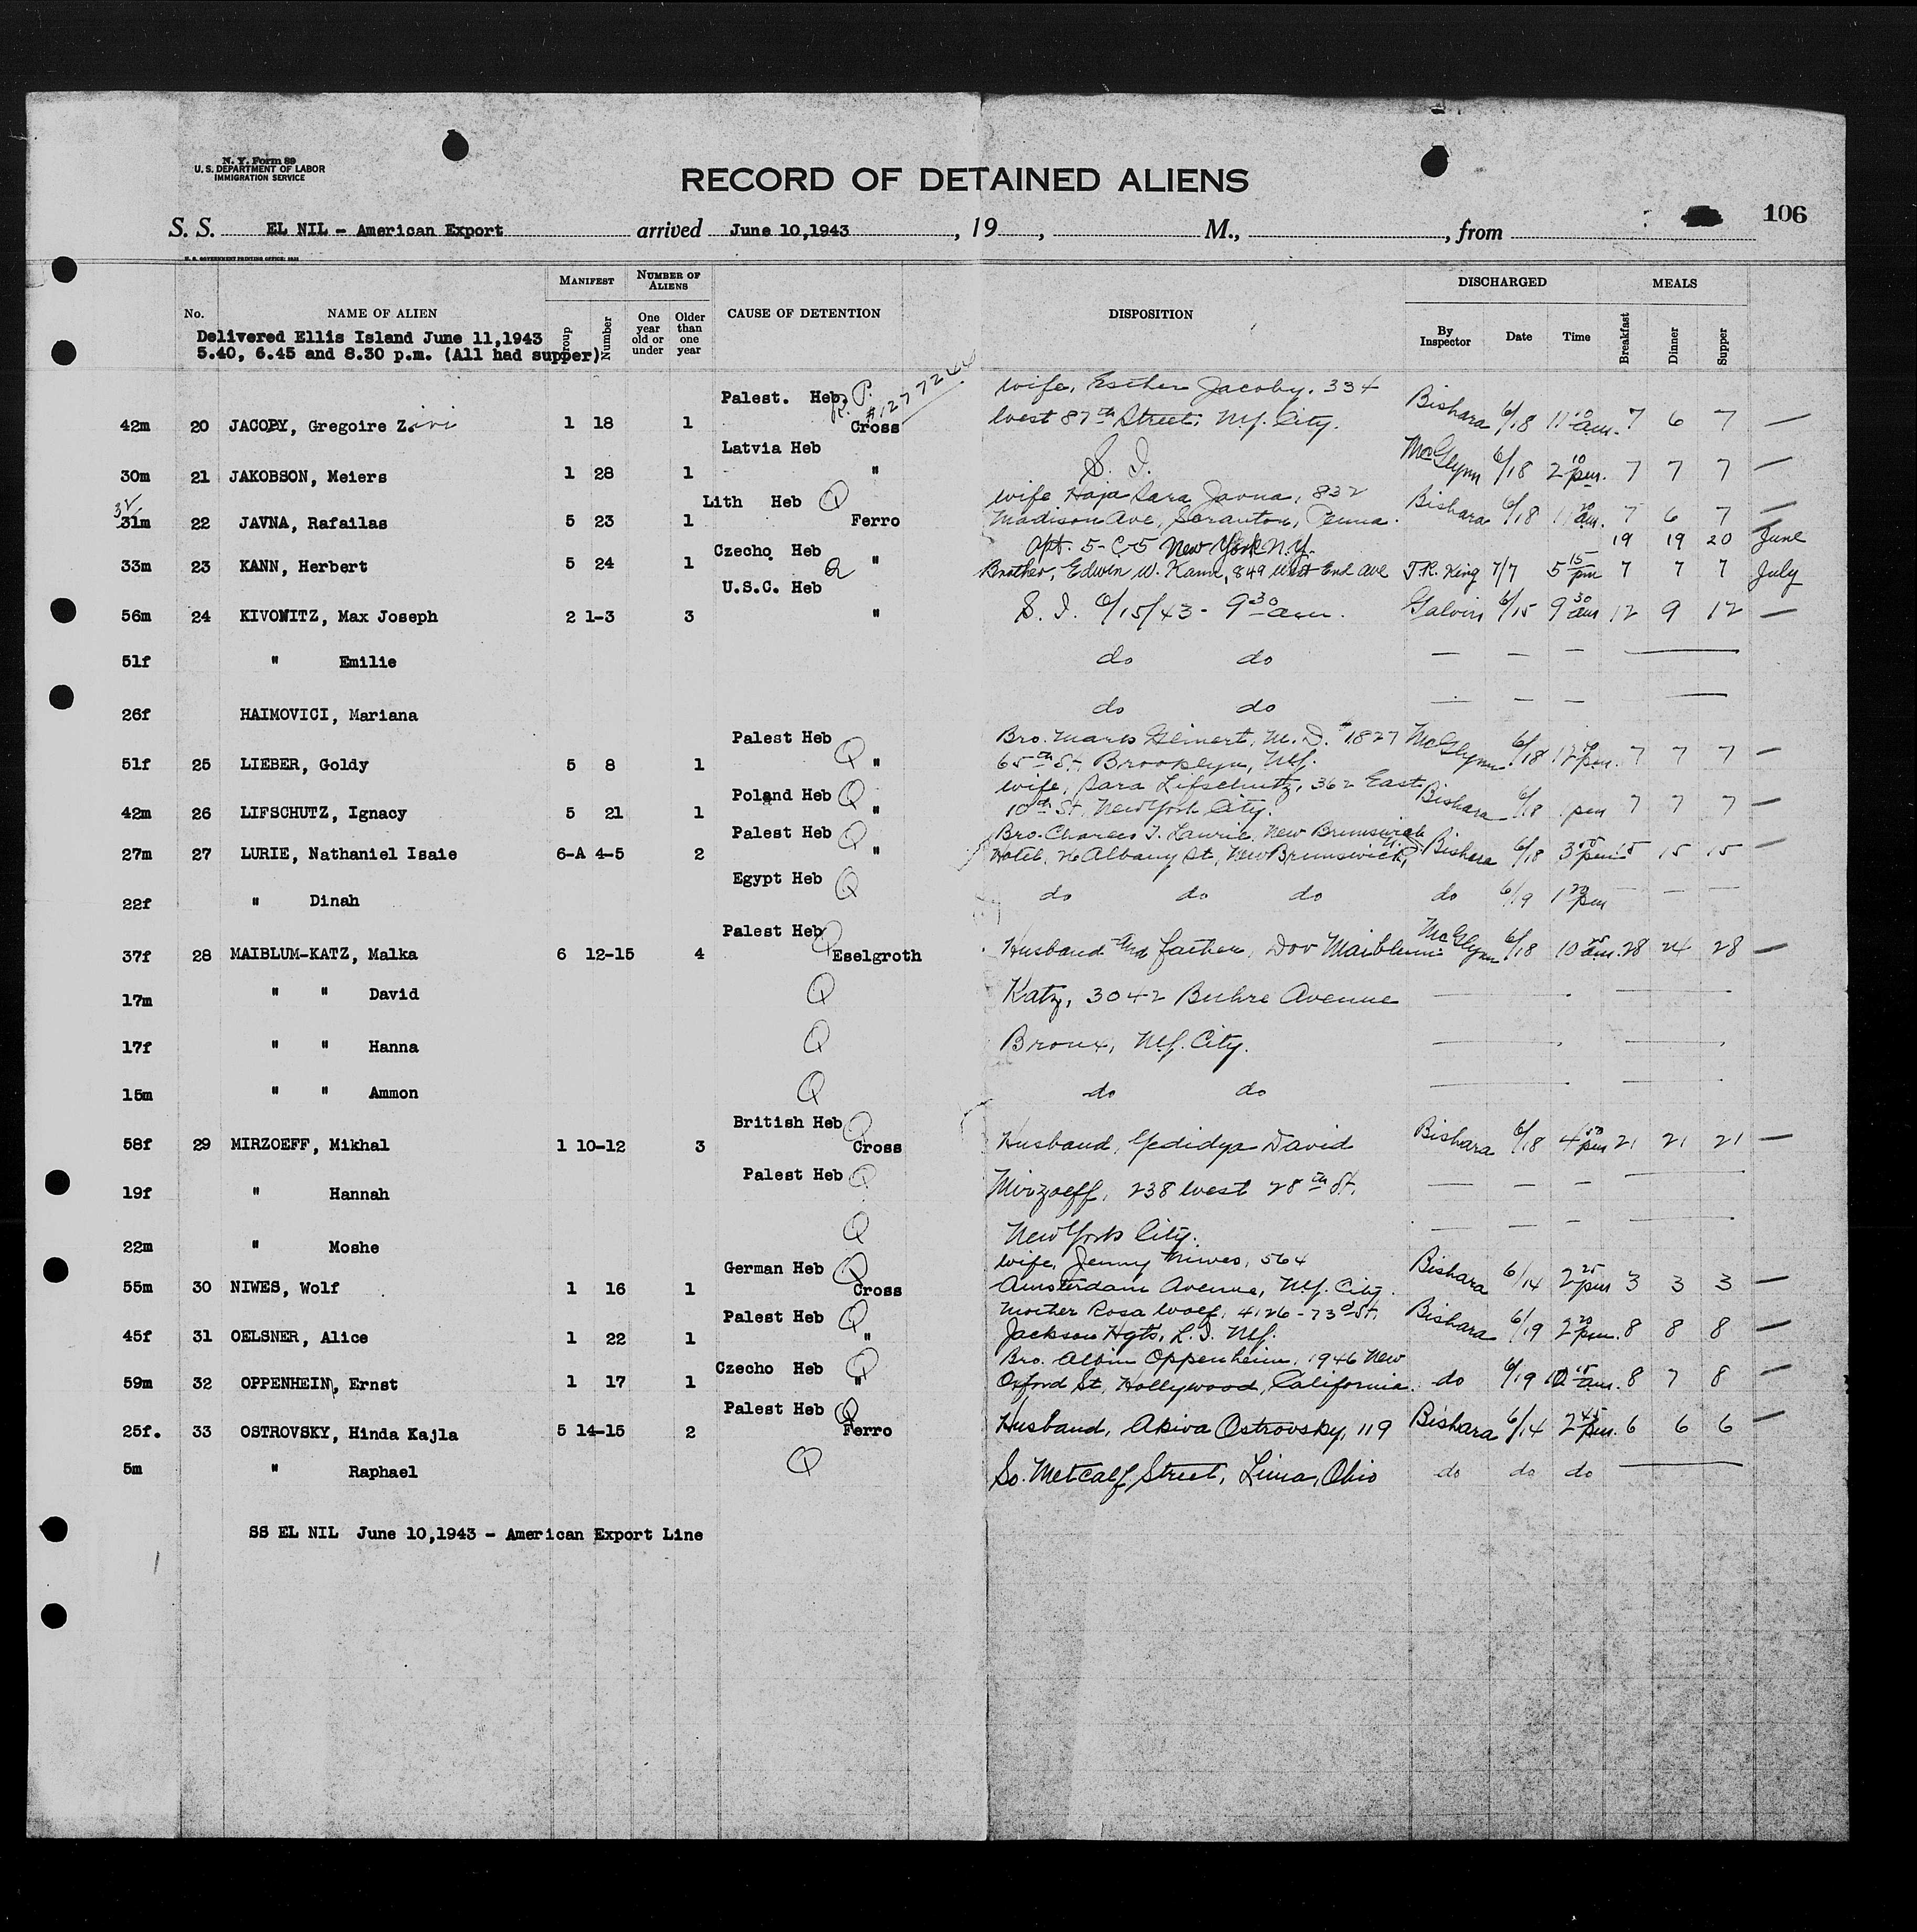 N. Y. Form 89
U. S. DEPARTMENT OF LABOR
IMMIGRATION SERVICE
RECORD OF DETAINED ALIENS
106
S. S. EL NIL - American Export arrived June 10,1943, 19 , M., , from
U. S. GOVERNMENT PRINTING OFFICE
No. NAME OF ALIEN MANIFEST Group Number NUMBER OF ALIENS One year old or under Older than one year CAUSE OF DETENTION DISPOSITION DISCHARGED By Inspector Date Time MEALS Breakfast Dinner Supper
Delivered Ellis Island June 11,1943
5.40, 6.45 and 8.30 p.m. (All had supper)
Palest. Heb R.P. #1277244 wife, Esther Jacoby, 334
42m 20 JACOBY, Gregoire Zvi 1 18 1 Cross West 87th Street, N.Y. City. Bishara 6/18 11 am. 7 6 7 —
Latvia Heb
30m 21 JAKOBSON, Meiers 1 28 1 " S. I. McGlynn 6/18 2 10 pm. 7 7 7 —
Lith Heb Q wife Haja Sara Javna, 832
32 31m 22 JAVNA, Rafailas 5 23 1 Ferro Madison Ave, Scranton, Penna. Bishara 6/18 11 am. 7 6 7 —
Czecho Heb Apt. 5-C-5 New York N.Y. 19 19 20 June
33m 23 KANN, Herbert 5 24 1 Q " Brother, Edwin W. Kann, 849 West End Ave J.R. King 7/7 5 15 pm 7 7 7 July
U.S.C. Heb
56m 24 KIVOWITZ, Max Joseph 2 1-3 3 " S. I. 6/15/43 - 9 30 am. Galvin 6/15 9 30 am 12 9 12 —
51f " Emilie do do — — —
26f HAIMOVICI, Mariana do do — — —
Palest Heb Q Bro. Marks M. D. 1827
51f 25 LIEBER, Goldy 5 8 1 " 65th St, Brooklyn, N.Y. McGlynn 6/18 12 pm. 7 7 7 —
Poland Heb Q wife, Sara Lifschutz, 362 East
42m 26 LIFSCHUTZ, Ignacy 5 21 1 " 10th St, New York City. Bishara 6/18 pm 7 7 7 —
Palest Heb Q Bro. Charles I. Lawrie, New Brunswick
27m 27 LURIE, Nathaniel Isaie 6-A 4-5 2 " Hotel, 26 Albany St, New Brunswick, N.J. Bishara 6/18 3 pm 15 15 15 —
Egypt Heb Q
22f " Dinah do do do do 6/19 1 pm — — —
Palest Heb Q
37f 28 MAIBLUM-KATZ, Malka 6 12-15 4 Eselgroth Husband and father, Dov Maiblum McGlynn 6/18 10 am. 28 24 28 —
17m " " David Q Katz, 3042 Buhre Avenue
17f " " Hanna Q Bronx, N.Y. City.
15m " " Ammon Q do do
British Heb Q
58f 29 MIRZOEFF, Mikhal 1 10-12 3 Cross Husband, Yedidya David Bishara 6/18 4 pm 21 21 21 —
Palest Heb Q
19f " Hannah Mirzoeff, 238 West 28th St, — — —
22m " Moshe Q New York City. — — —
German Heb Q wife, Jenny Niwes, 564
55m 30 NIWES, Wolf 1 16 1 Cross Amsterdam Avenue, N.Y. City. Bishara 6/14 2 25 pm 3 3 3 —
Palest Heb Q Mother Rosa Wolf, 4126-73d St.
45f 31 OELSNER, Alice 1 22 1 " Jackson Hgts, L.I. N.Y. Bishara 6/19 2 20 pm. 8 8 8 —
Czecho Heb Q Bro. Albin Oppenheim, 1946 New
59m 32 OPPENHEIM, Ernst 1 17 1 " Oxford St, Hollywood, California. do 6/19 10 15 am. 8 7 8 —
Palest Heb Q
25f. 33 OSTROVSKY, Hinda Kajla 5 14-15 2 Ferro Husband, Akiva Ostrovsky, 119 Bishara 6/14 2 45 pm. 6 6 6 —
5m " Raphael Q So. Metcalf Street, Lima, Ohio do do do
SS EL NIL June 10,1943 - American Export Line